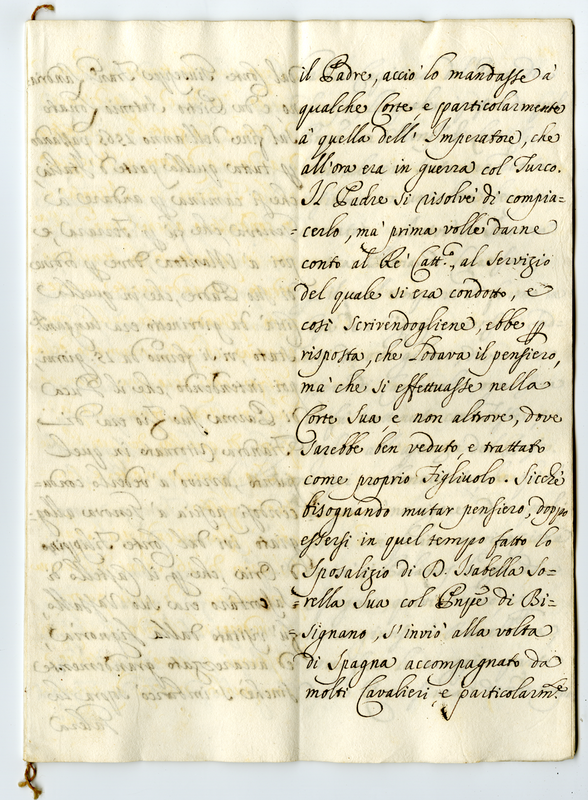 il Padre, acciò lo mandasse à
qualche Corte, e particolarmente
à quella dell' Imperatore, che
all'ora era in guerra col Turco.
Il Padre si risolvè di compia=
cerlo, mà prima volle darne
conto al Rè Catt.co, al servizio
del quale si era condotto, e
così scrivendogliene, ebbe p
risposta, che lodava il pensiero,
mà che si effettuasse nella
Corte sua, e non altrove, dove
sarebbe ben veduto, e trattato
come proprio Figlivolo. Sicchè
bisognando mutar pensiero, doppo
essersi in quel tempo fatto lo
Sposalizio di D. Isabella So=
rella sua col Pnpe di Bi=
signano, s'inviò alla volta
di Spagna accompagnato da
molti Cavalieri, e particolarm.te